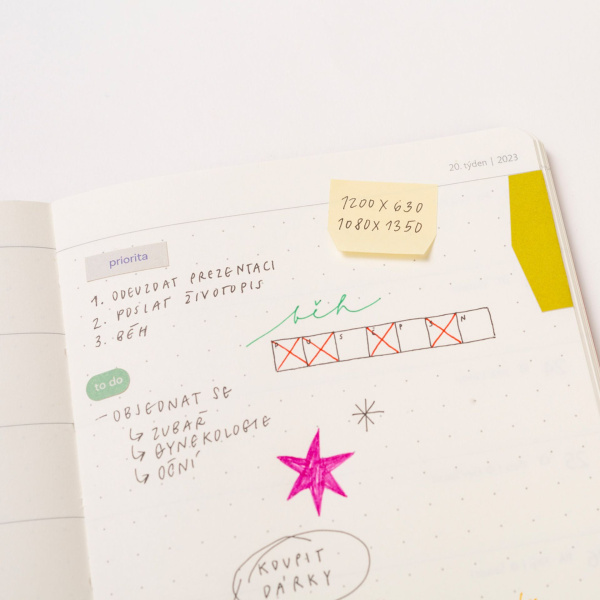 20. týden | 2023
1200 X 630
1080 X 1350
priorita
1. ODEVZDAT PREZENTACI
2. POSLAT ŽIVOTOPIS
3. BĚH
běh
P Ú S Č P S N
to do
– OBJEDNAT SE
↳ ZUBAŘ
↳ GYNEKOLOGIE
↳ OČNÍ
KOUPIT
DÁRKY